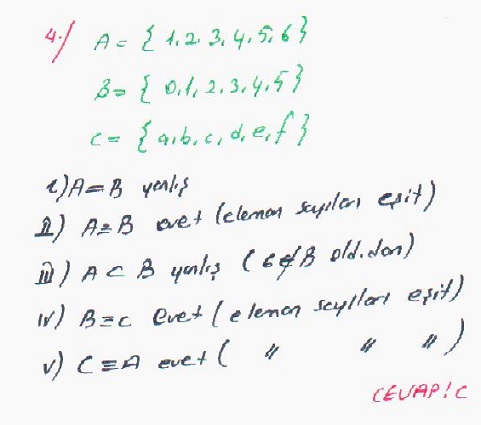 4-) A = { 1, 2, 3, 4, 5, 6 }
B = { 0, 1, 2, 3, 4, 5 }
C = { a, b, c, d, e, f }
i) A = B yanlış
ii) A ≡ B evet (eleman sayıları eşit)
iii) A ⊂ B yanlış (6 ∉ B old.dan)
iv) B ≡ C Evet (eleman sayıları eşit)
v) C ≡ A evet ( " " " )
CEVAP: C